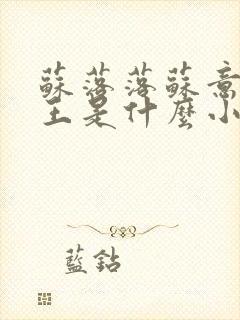 蘇落落蘇意
王是什麼小
藍鈷